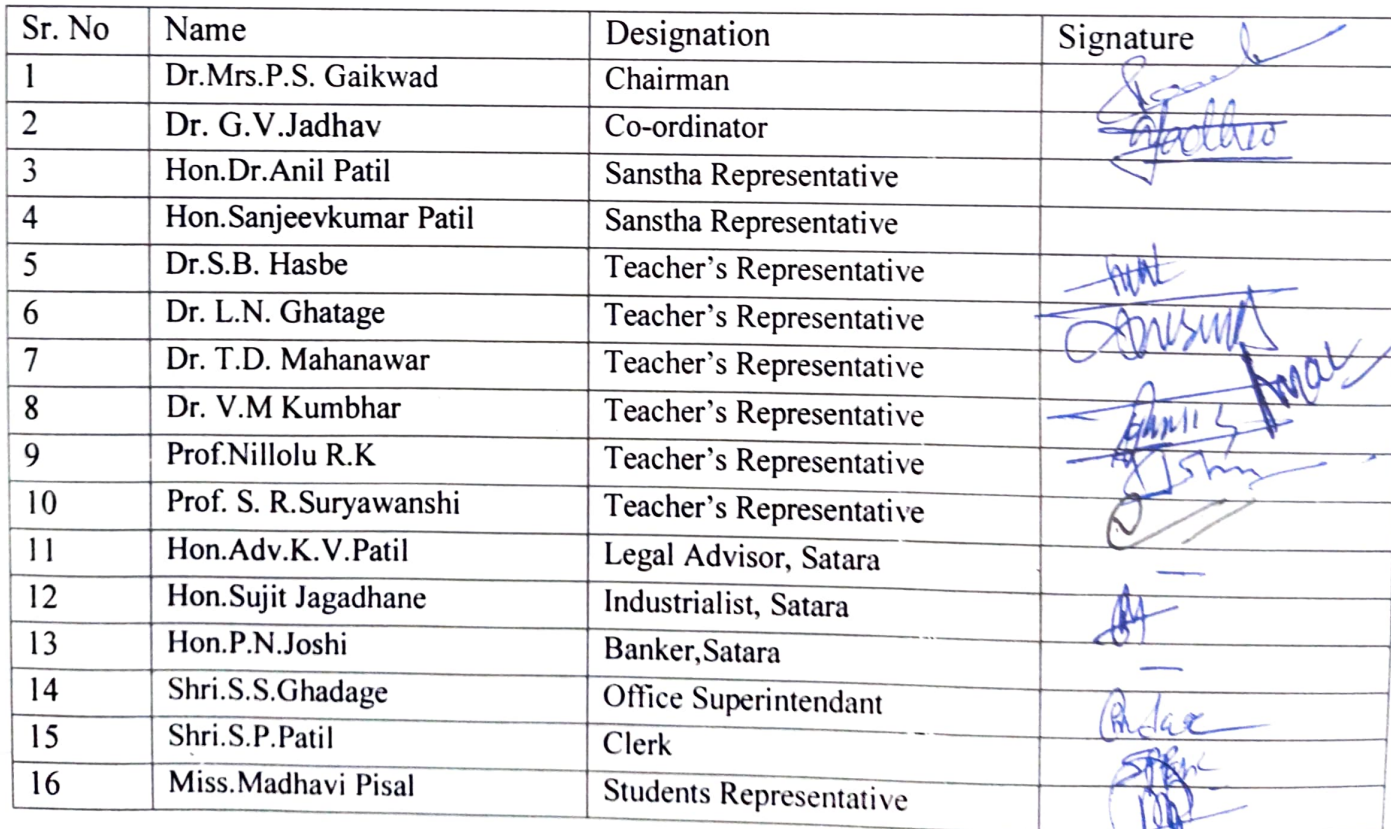 Sr. No Name Designation Signature
1 Dr.Mrs.P.S. Gaikwad Chairman
2 Dr. G.V.Jadhav Co-ordinator
3 Hon.Dr.Anil Patil Sanstha Representative
4 Hon.Sanjeevkumar Patil Sanstha Representative
5 Dr.S.B. Hasbe Teacher’s Representative
6 Dr. L.N. Ghatage Teacher’s Representative
7 Dr. T.D. Mahanawar Teacher’s Representative
8 Dr. V.M Kumbhar Teacher’s Representative
9 Prof.Nillolu R.K Teacher’s Representative
10 Prof. S. R.Suryawanshi Teacher’s Representative
11 Hon.Adv.K.V.Patil Legal Advisor, Satara —
12 Hon.Sujit Jagadhane Industrialist, Satara
13 Hon.P.N.Joshi Banker,Satara —
14 Shri.S.S.Ghadage Office Superintendant
15 Shri.S.P.Patil Clerk
16 Miss.Madhavi Pisal Students Representative